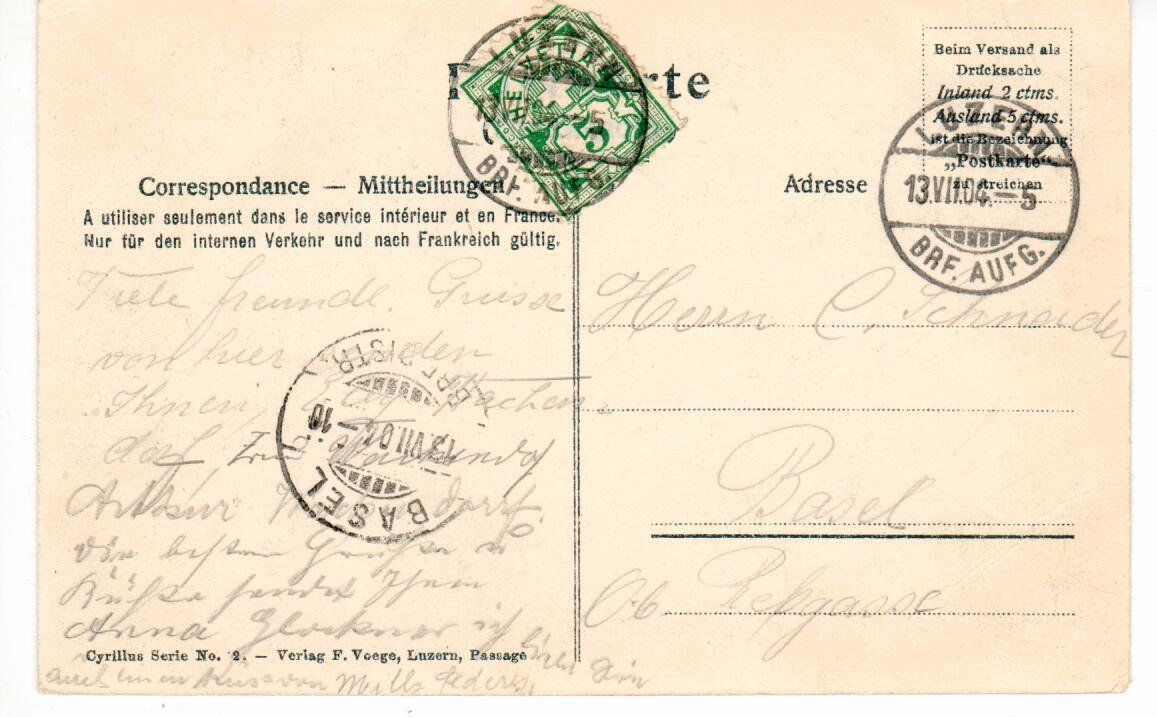 LUZERN
HELVETIA
5
BRF. AUFG.
Beim Versand als
Drucksache
Inland 2 ctms.
Ausland 5 ctms.
ist die Bezeichnung
„Postkarte“
zu streichen
LUZERN
13.VII.04.–5
BRF. AUFG.
Correspondance — Mittheilungen
Adresse
A utiliser seulement dans le service intérieur et en France.
Nur für den internen Verkehr und nach Frankreich gültig.
Viele freundl. Grüsse
von hier senden
Ihnen,
Arthur
die besten Grüße u
Küsse sendet Ihnen
Anna Glockner
BRF. DISTR.
13.VII.04.–10
BASEL
Herrn C. Schneider
Basel
Ob. Rebgasse
Cyrillus Serie No. 2. — Verlag F. Voege, Luzern, Passage